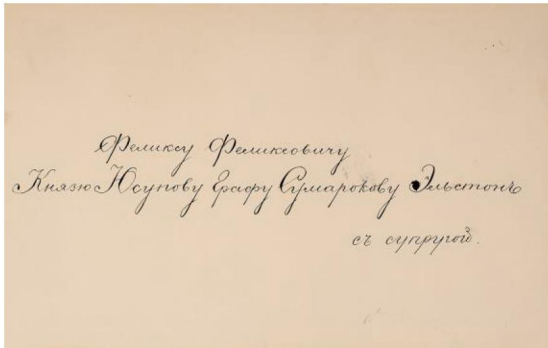 Феликсу Феликсовичу
Князю Юсупову Графу Сумарокову Эльстонъ
съ супругой.